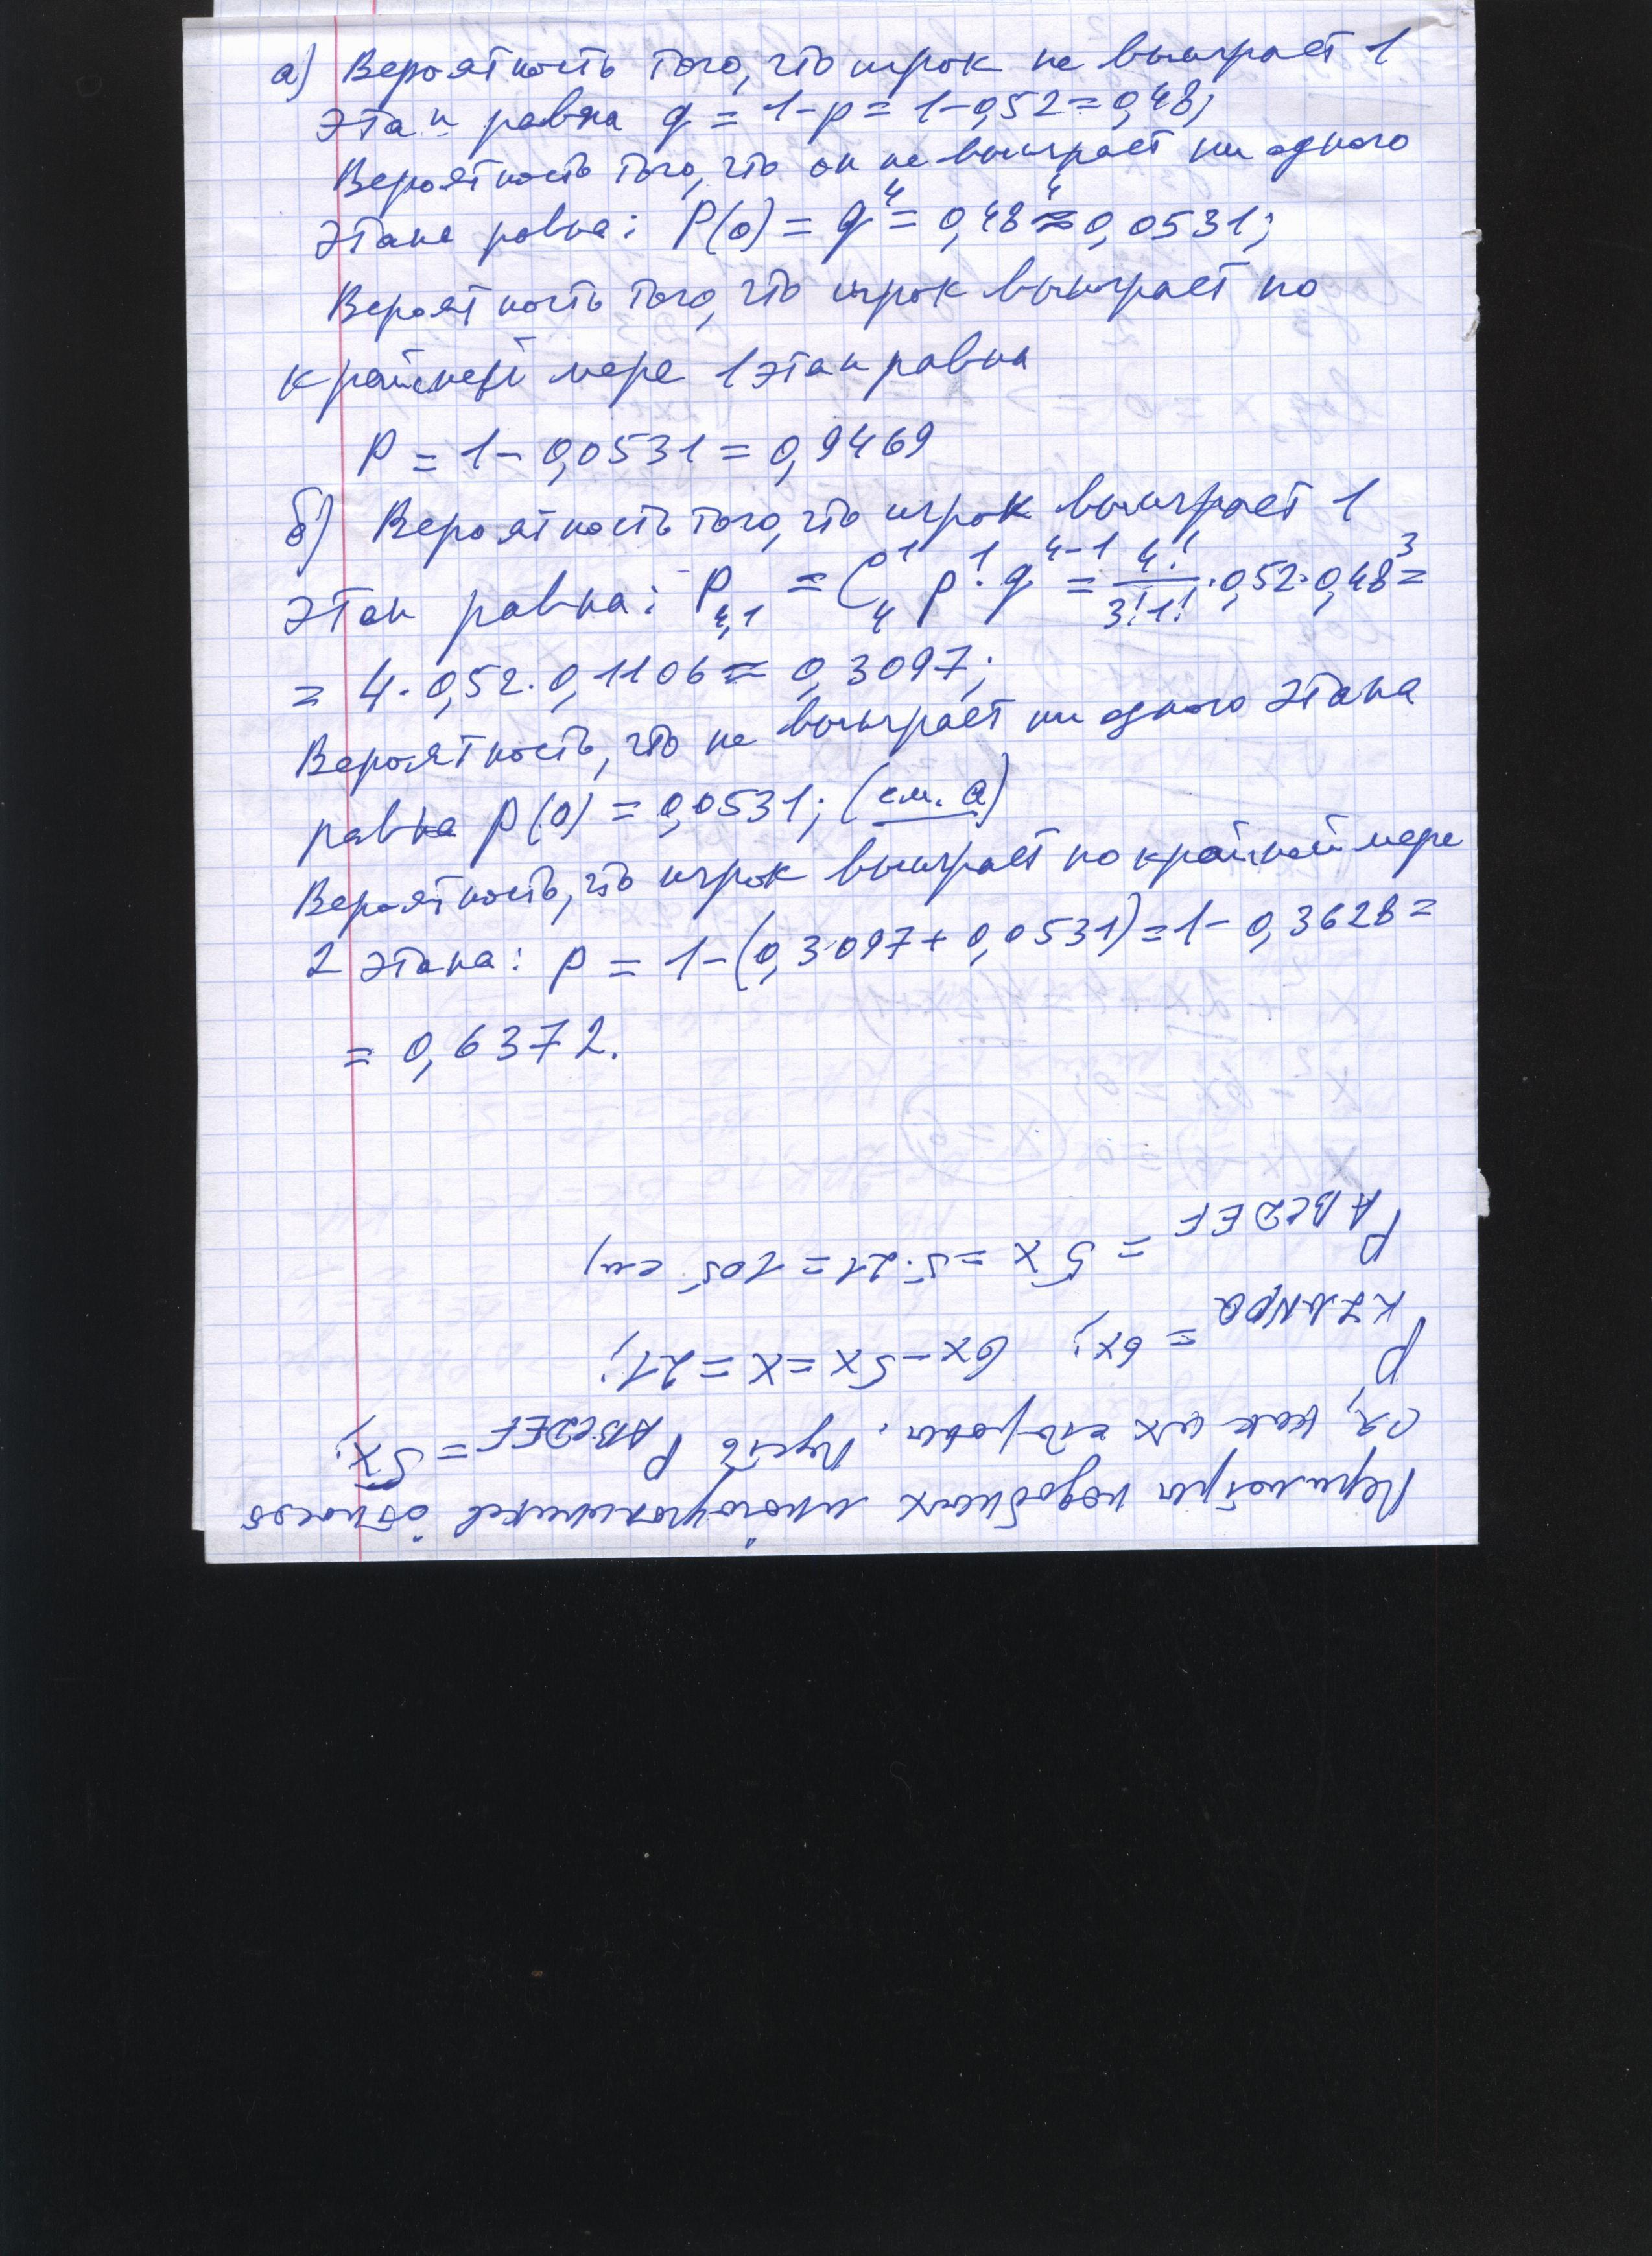 а) Вероятность того, что игрок не выиграет 1
этап равна q = 1-p = 1-0,52 = 0,48;
Вероятность того, что он не выиграет ни одного
этапа равна: P(0) = q⁴ = 0,48⁴ ≈ 0,0531;
Вероятность того, что игрок выиграет по
крайней мере 1 этап равна
P = 1 - 0,0531 = 0,9469
б) Вероятность того, что игрок выиграет 1
этап равна: P₄,₁ = C₄¹ p¹·q⁴⁻¹ = 4!/3!1! ·0,52·0,48³ =
= 4·0,52·0,1106 ≈ 0,3097;
Вероятность, что не выиграет ни одного этапа
равна p(0) = 0,0531; (см. а)
Вероятность, что игрок выиграет по крайней мере
2 этапа: p = 1-(0,3097+0,0531) = 1-0,3628 =
= 0,6372.
Периметры подобных многоугольников относят
ся, как их стороны. Пусть P ABCDEF = 5x;
P KZMNPQ = 6x; 6x-5x = x = 21;
P ABCDEF = 5x = 5·21 = 105 см)